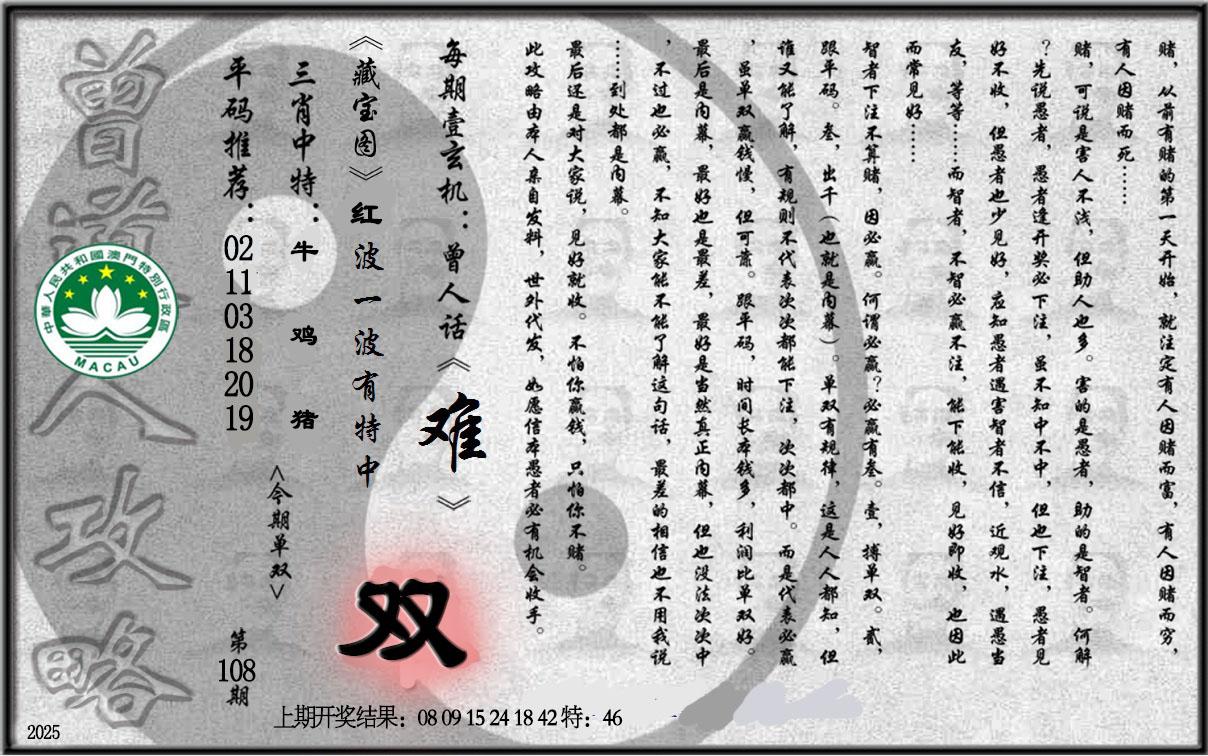 赌，从前有赌的第一天开始，就注定有人因赌而富，有人因赌而穷，
有人因赌而死……
赌，可说是害人不浅，但助人也多。害的是愚者，助的是智者。何解
？先说愚者，愚者逢开奖必下注，虽不知中不中，但也下注，愚者见
好不收，但愚者也少见好，应知愚者遇害智者不信，近观水，遇愚当
友，等等……而智者，不智必赢不注，能下能收，见好即收，也因此
而常见好……
智者下注不算赌，因必赢。何谓必赢？必赢有叁。壹，搏单双。贰，
跟平码。叁，出千（也就是内幕）。单双有规律，这是人人都知，但
谁又能了解，有规则不代表次次都能下注，次次都中。而是代表必赢
，虽单双赢钱慢，但可靠。跟平码，时间长本钱多，利润比单双好。
最后是内幕，最好也是最差，最好是当然真正内幕，但也没法次次中
，不过也必赢，不知大家能不能了解这句话，最差的相信也不用我说
……到处都是内幕。
最后还是对大家说，见好就收。不怕你赢钱，只怕你不赌。
此攻略由本人亲自发料，世外代发，如愿信本愚者必有机会收手。
每期壹玄机：曾人话《难》
《藏宝图》红波一波有特中
双
三肖中特：牛 鸡 猪
<今期单双>
平码推荐：02 11 03 18 20 19
第108期
曾道人攻略
中華人民共和國澳門特別行政區
MACAU
上期开奖结果：08 09 15 24 18 42 特：46
2025